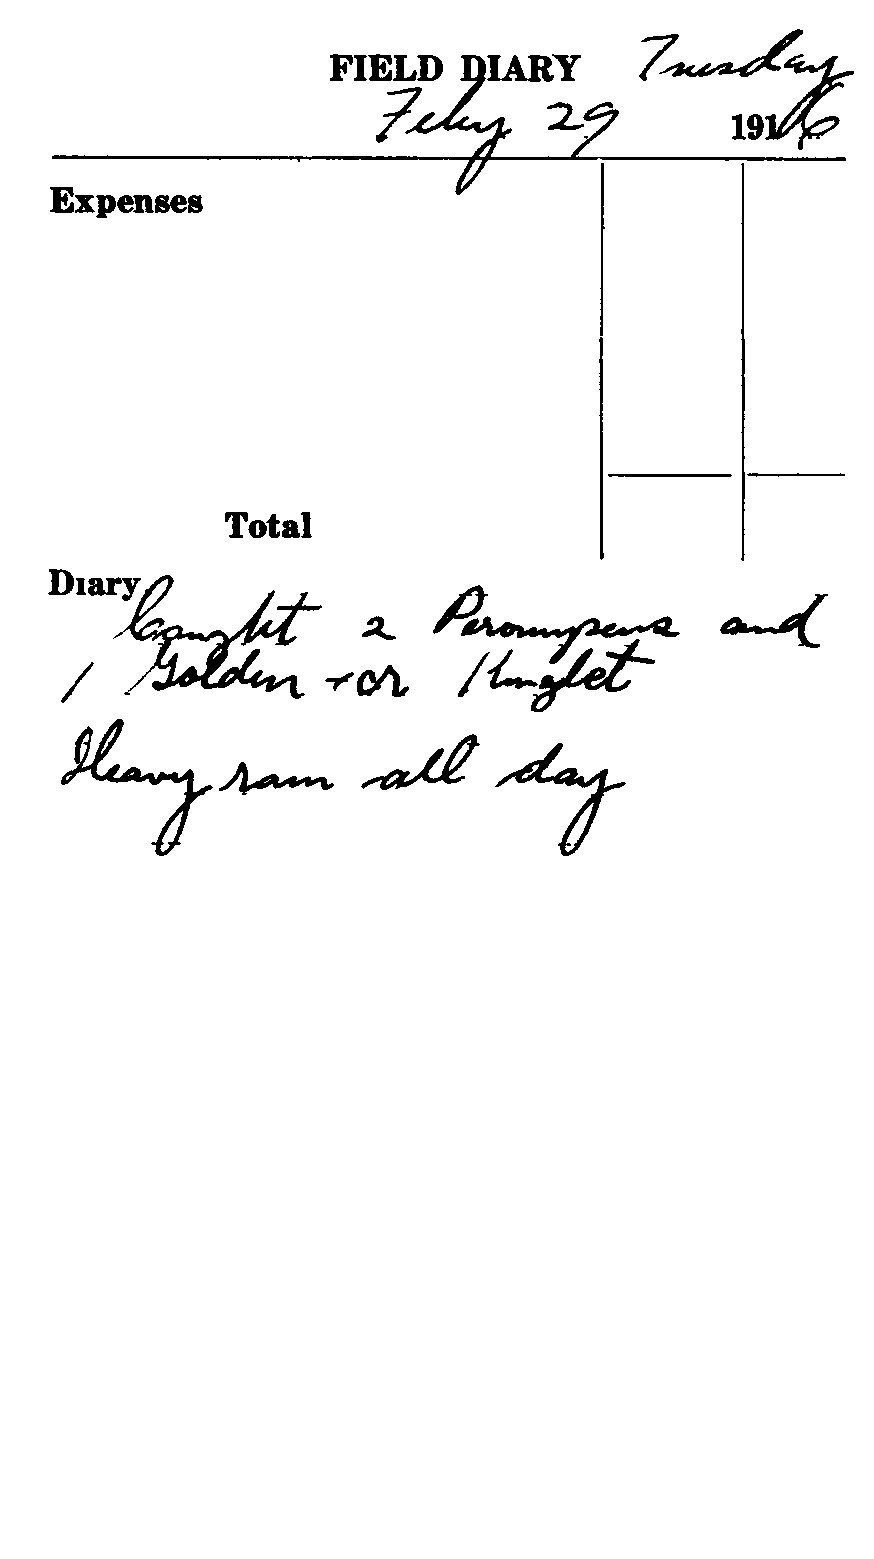 FIELD DIARY Tuesday
Feby 29 1916
Expenses
Total
Diary
Caught 2 Peromyscus and
1 Golden-cr Kinglet
Heavy rain all day